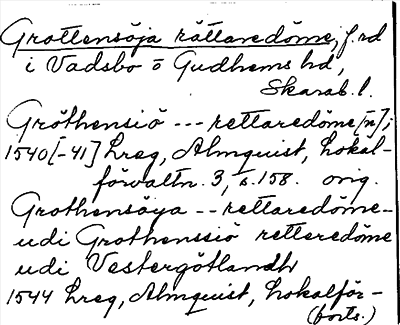 Grottensöja rättaredöme, f. rd
i Vadsbo o Gudhems hd,
Skarab. l.
Gröthensiö --- rettaredöme[n];
1540[-41] Lreg, Almquist, Lokal-
förvaltn. 3, s. 158. orig.
Grothensöya -- rettaredöme-
udi Grothenssiö retteredöme
udi Vestergötlandh
1544 Lreg, Almquist, Lokalför-
(forts.)